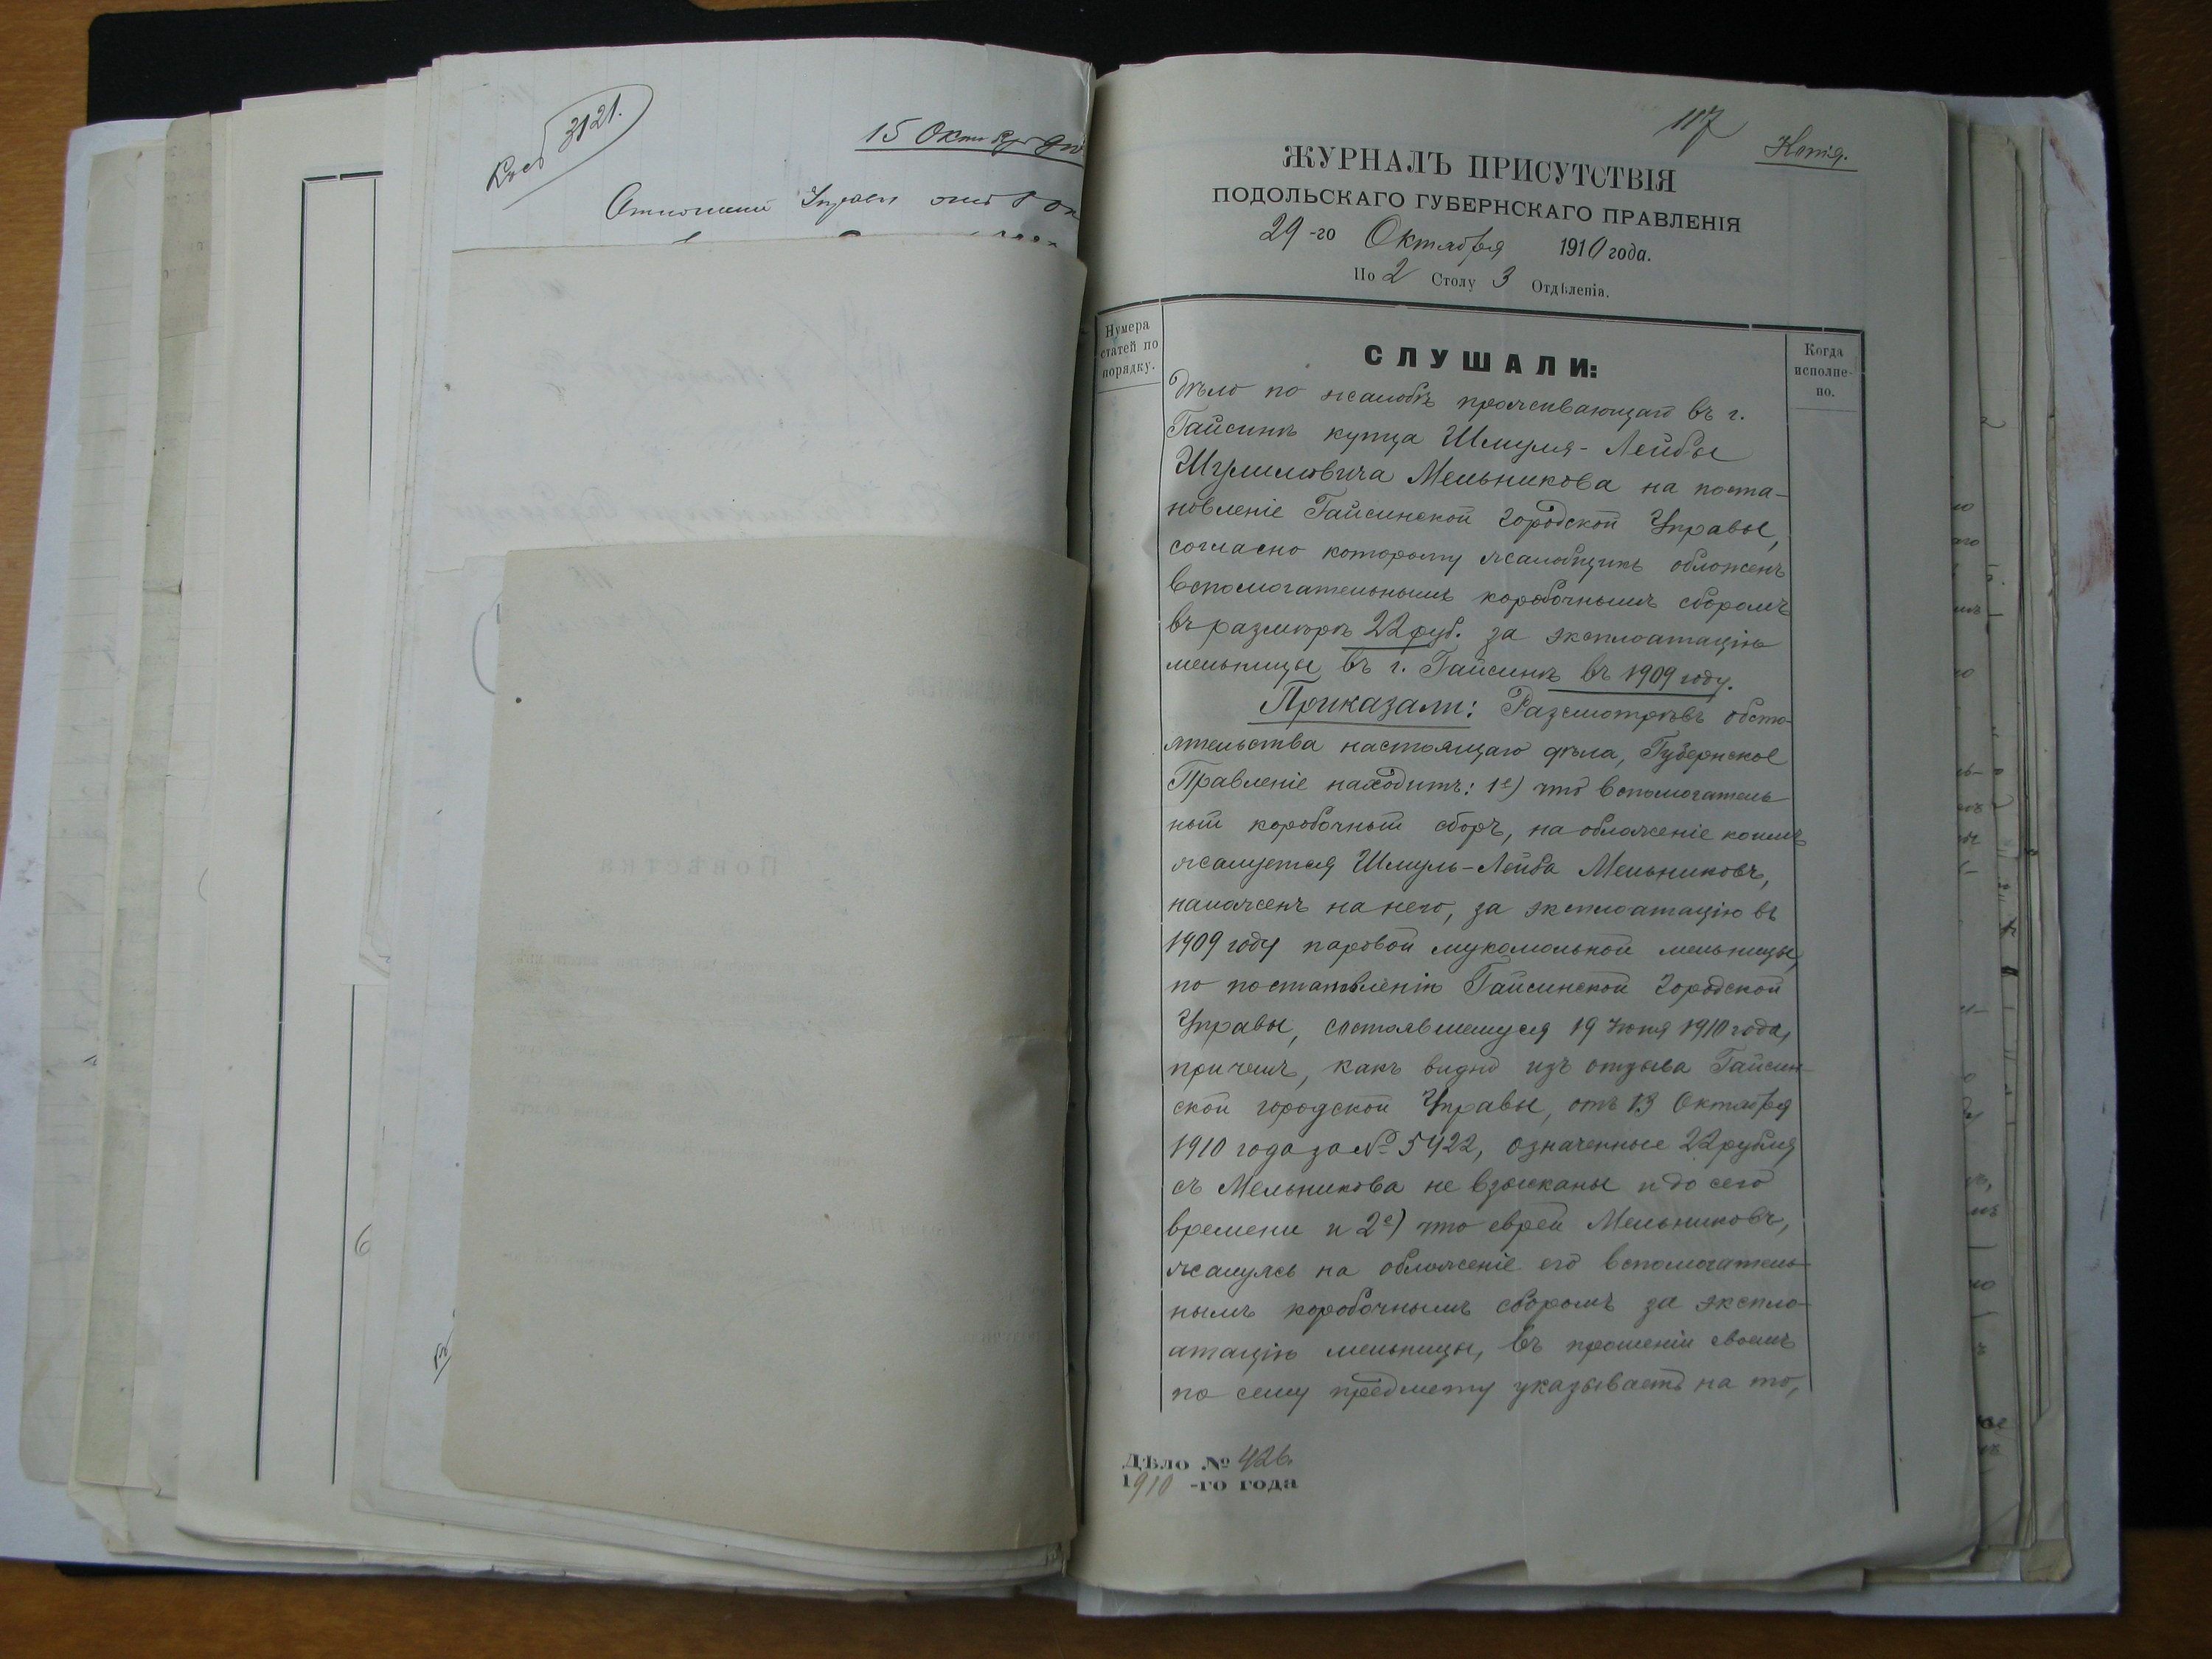 3121.
15 Октября
117
Копія.
ЖУРНАЛЪ ПРИСУТСТВІЯ
ПОДОЛЬСКАГО ГУБЕРНСКАГО ПРАВЛЕНІЯ
29-го Октября 1910 года.
По 2 Столу 3 Отдѣленія.
Нумера
статей по
порядку.
СЛУШАЛИ:
Когда
исполне-
но.
Дѣло по жалобѣ проживающаго въ г.
Гайсинѣ купца Шмуля-Лейбы
Шулимовича Мельникова на поста-
новленіе Гайсинской Городской Управы,
согласно которому жалобщикъ обложенъ
вспомогательнымъ коробочнымъ сборомъ
въ размѣрѣ 22 руб. за эксплоатацію
мельницы въ г. Гайсинѣ въ 1909 году.
Приказали: Разсмотрѣвъ обсто-
ятельства настоящаго дѣла, Губернское
Правленіе находитъ: 1е) что вспомогатель
ный коробочный сборъ, на обложеніе коимъ
жалуется Шмуль-Лейба Мельниковъ,
наложенъ на него, за эксплоатацію въ
1909 году паровой мукомольной мельницы,
по постановленію Гайсинской Городской
Управы, состоявшемуся 19 Іюня 1910 года,
причемъ, какъ видно изъ отзыва Гайсин-
ской городской Управы, отъ 13 Октября
1910 года за № 5422, означенные 22 рубля
съ Мельникова не взысканы и до сего
времени и 2е) что еврей Мельниковъ,
жалуясь на обложеніе его вспомогатель-
нымъ коробочнымъ сборомъ за экспло-
атацію мельницы, въ прошеніи своемъ
по сему предмету указываетъ на то,
Дѣло № 426.
1910-го года
6